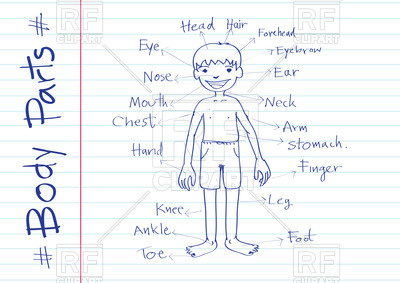 # Body Parts #
Head Hair
Forehead
Eye
Eyebrow
Nose
Ear
Mouth
Neck
Chest
Arm
Stomach.
Hand
Finger
Leg
Knee
Ankle
Foot
Toe
RF
CLIPART
RF
CLIPART
RF
CLIPART
RF
CLIPART
RF
CLIPART